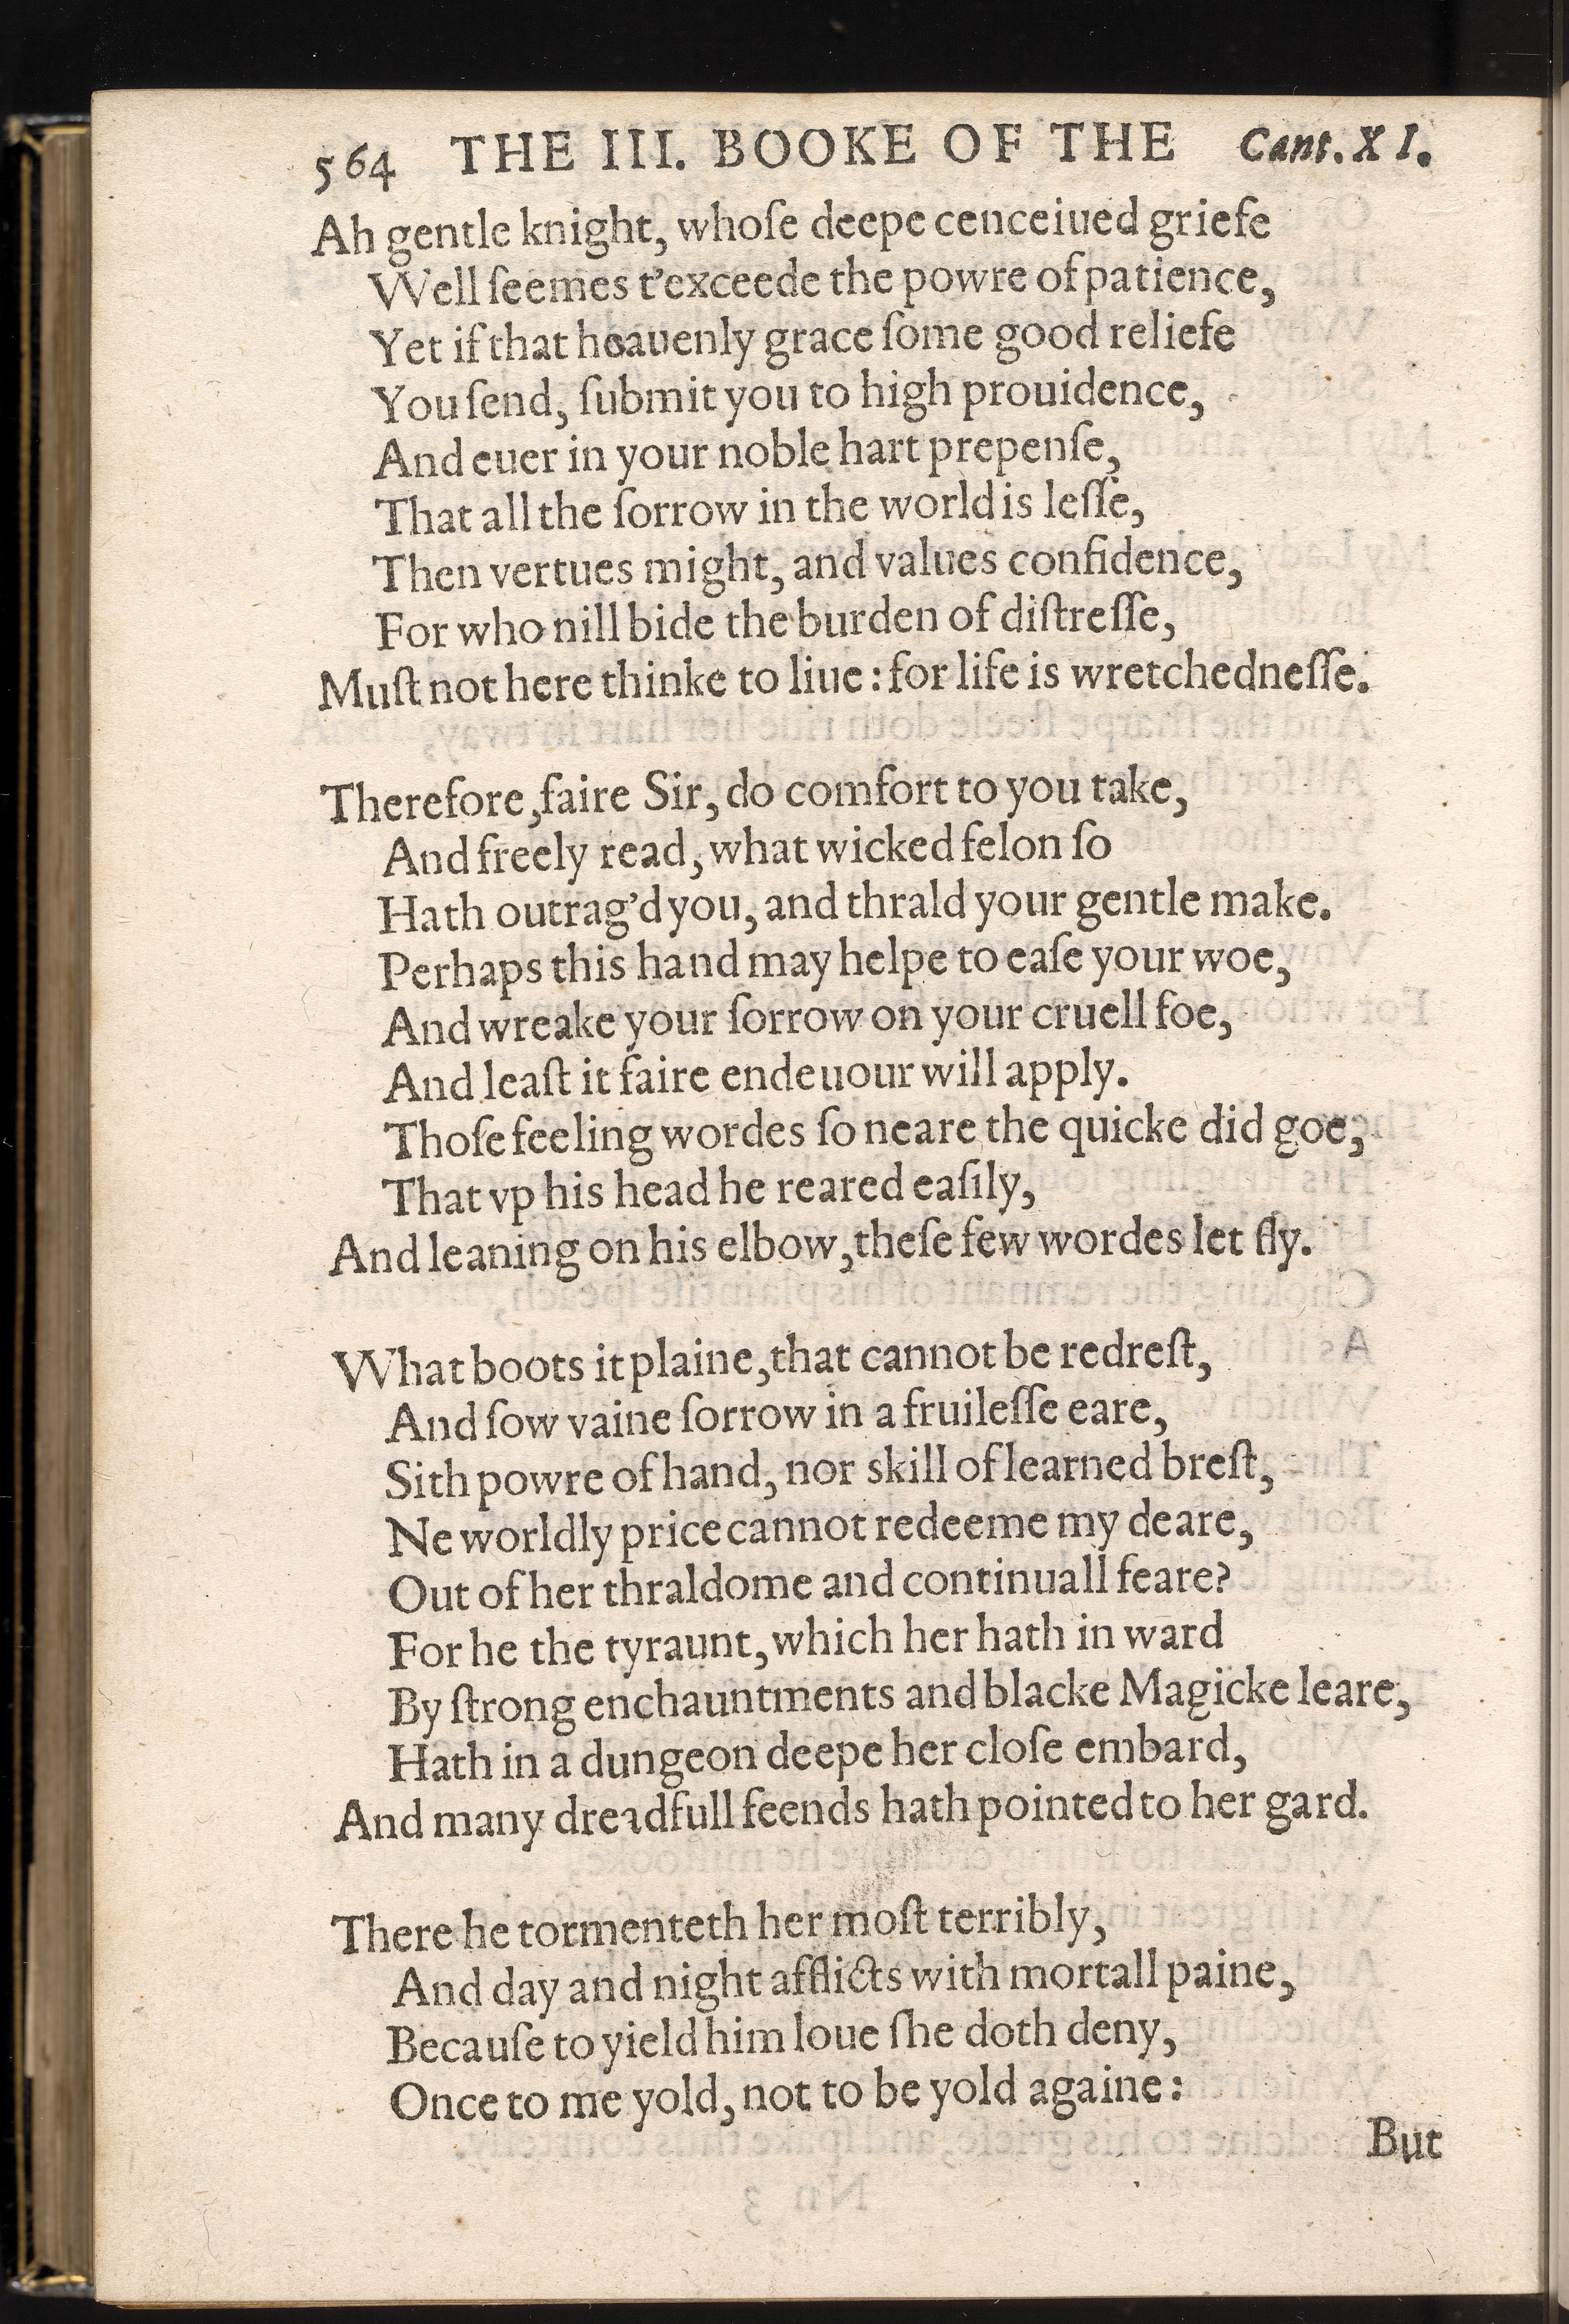 564 THE III. BOOKE OF THE Cant. XI.
Ah gentle knight, whoſe deepe cenceiued griefe
Well ſeemes t'exceede the powre of patience,
Yet if that heauenly grace ſome good reliefe
You ſend, ſubmit you to high prouidence,
And euer in your noble hart prepenſe,
That all the ſorrow in the world is leſſe,
Then vertues might, and values confidence,
For who nill bide the burden of diſtreſſe,
Muſt not here thinke to liue: for life is wretchedneſſe.
Therefore, faire Sir, do comfort to you take,
And freely read, what wicked felon ſo
Hath outrag'd you, and thrald your gentle make.
Perhaps this hand may helpe to eaſe your woe,
And wreake your ſorrow on your cruell foe,
And leaſt it faire endeuour will apply.
Thoſe feeling wordes ſo neare the quicke did goe,
That vp his head he reared eaſily,
And leaning on his elbow, theſe few wordes let fly.
What boots it plaine, that cannot be redreſt,
And ſow vaine ſorrow in a fruileſſe eare,
Sith powre of hand, nor skill of learned breſt,
Ne worldly price cannot redeeme my deare,
Out of her thraldome and continuall feare?
For he the tyraunt, which her hath in ward
By ſtrong enchauntments and blacke Magicke leare,
Hath in a dungeon deepe her cloſe embard,
And many dreadfull feends hath pointed to her gard.
There he tormenteth her moſt terribly,
And day and night afflicts with mortall paine,
Becauſe to yield him loue ſhe doth deny,
Once to me yold, not to be yold againe:
But